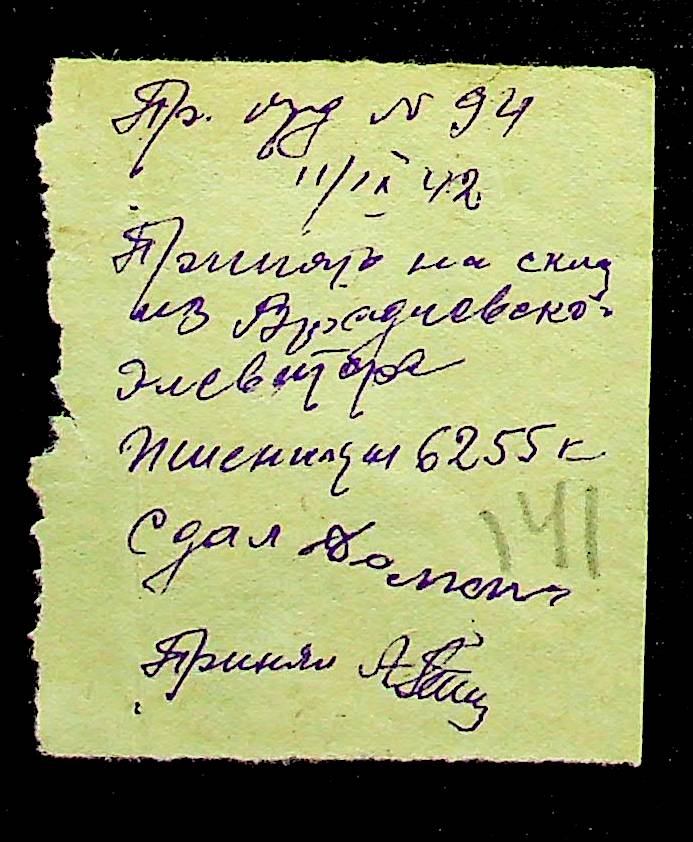 Пр. орд № 94
11/IX 42
Принято на склад
из Врадиевско-
элеватора
Пшеницы 6255 к
Сдал
141
Принял